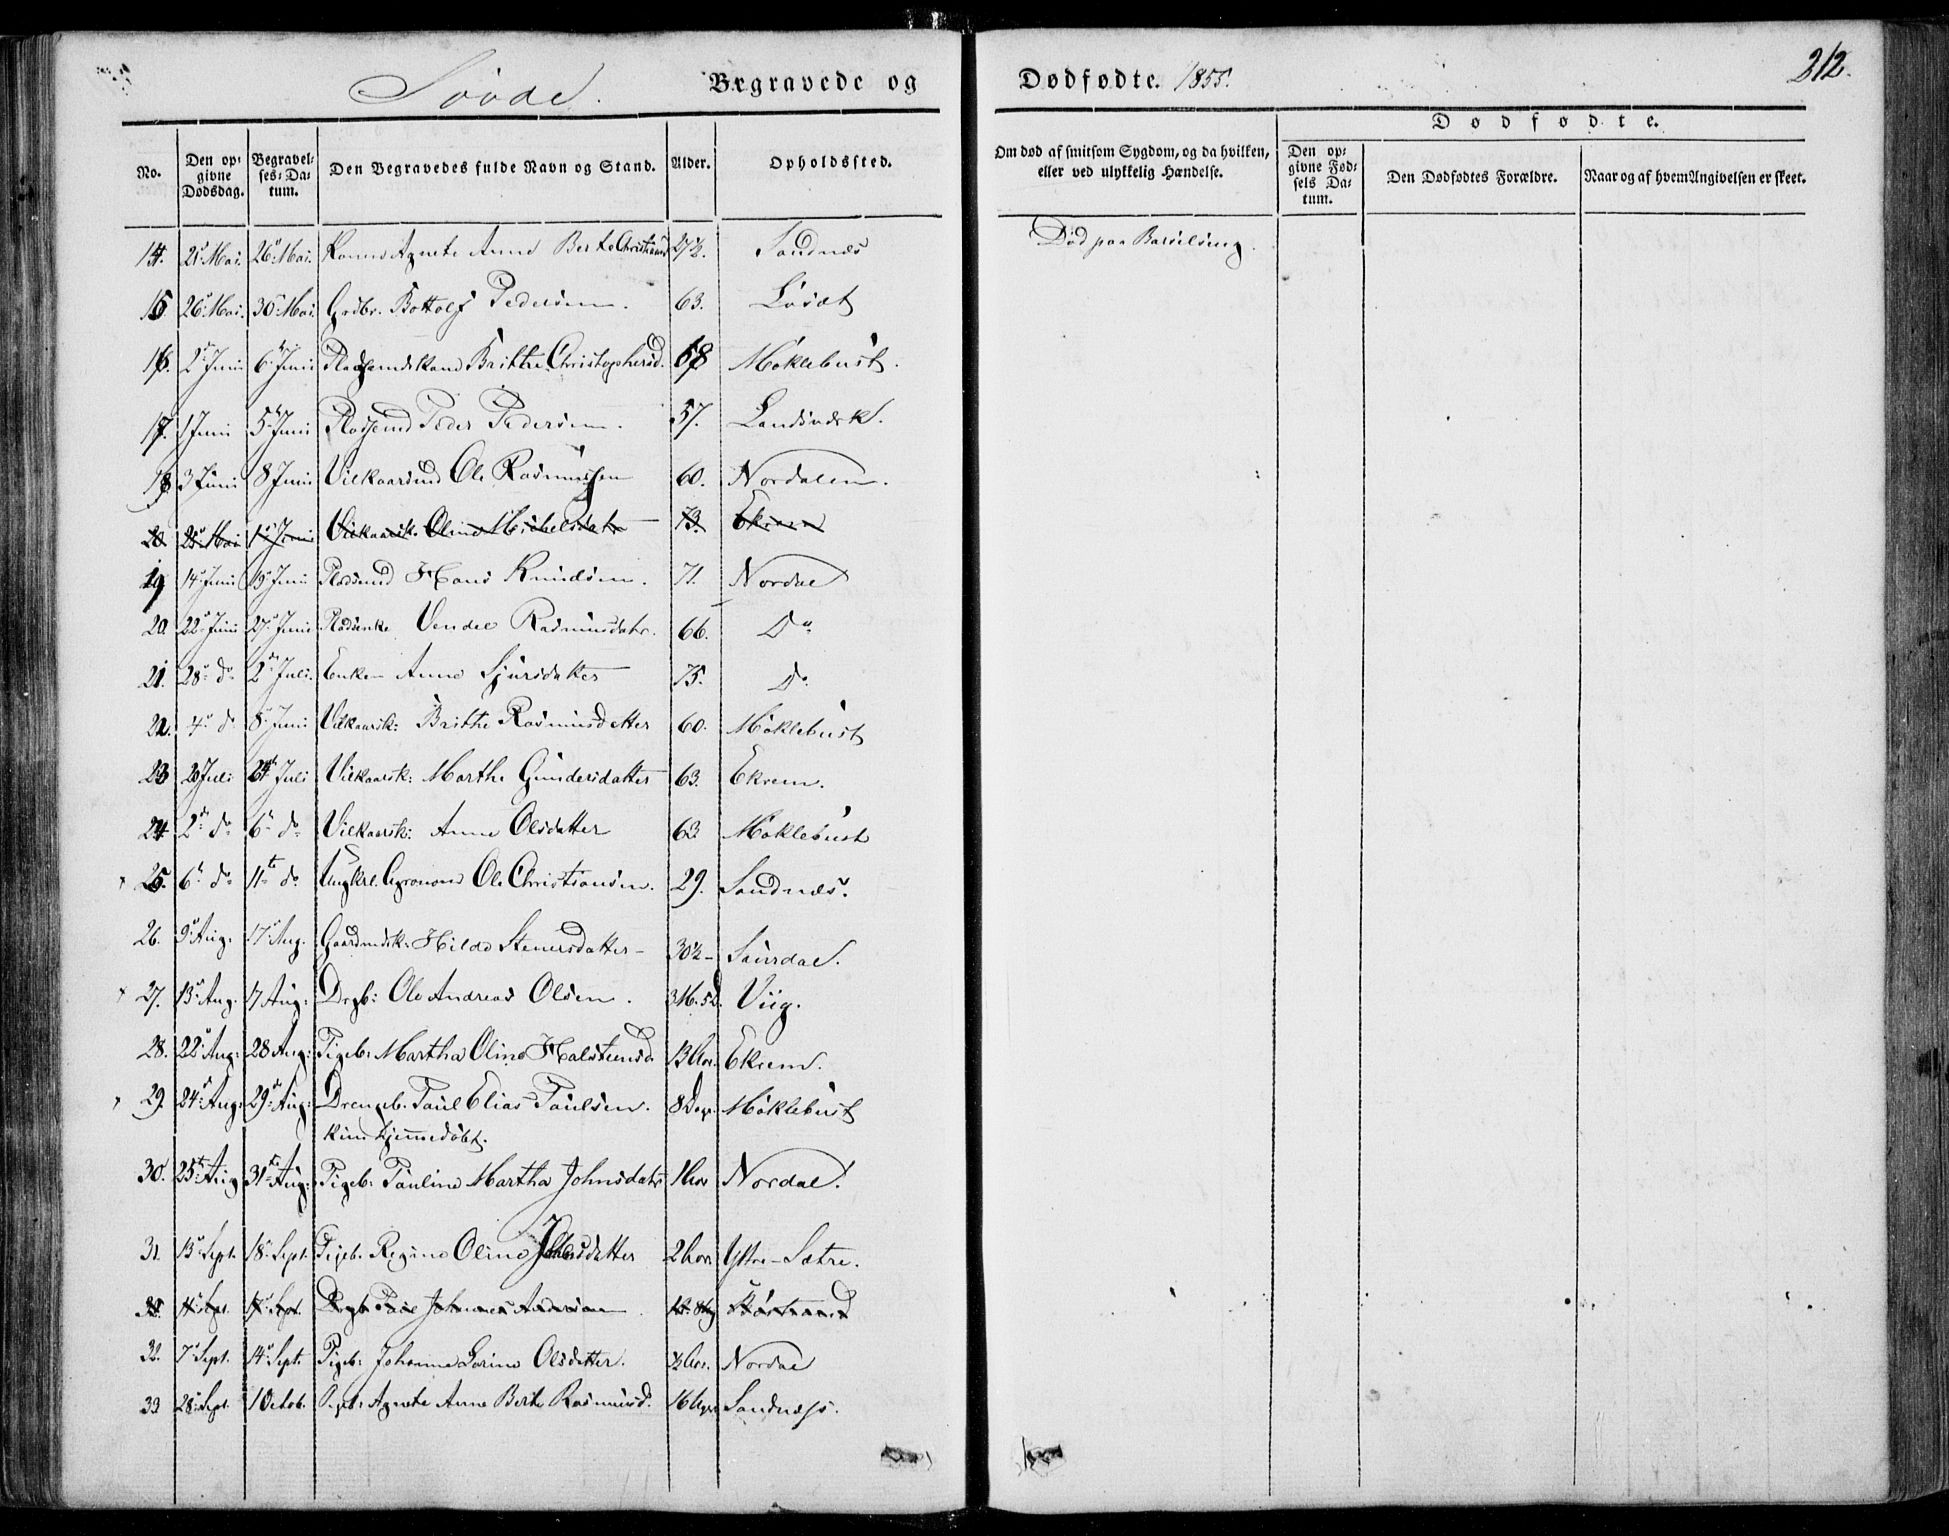 Søvde. Begravede og Dødfødte. 1855. 212.
No. Den opgivne Dødsdag. Begravelses-Datum. Den Begravedes fulde Navn og Stand. Alder. Opholdssted. Om død af smitsom Sygdom, og da hvilken, eller ved ulykkelig Hændelse. Dødfødte. Den opgivne Fødsels Datum. Den Dødfødtes Forældre. Naar og af hvem Angivelsen er skeet.
14. 21 Mai. 26 Mai. Konen Agnete Anne Berte Christians 27½. Sandnæs Død paa Barselseng.
15 26 Mai. 30 Mai. Grdbr. Bottolf Pedersen. 63.
16. 2 Juni 6 Juni Brithe Christophersd. 68 Møklebust.
17. 1 Juni 5 Juni Pladsmd Peder Pedersen. 57.
18 3 Juni 8 Juni Vilkaarsmd Ole Rasmussen 60. Nordalen.
20. 25 Mai 1 Juni Vilkaarsk. Oline Michelsdatr 73. Ekrem
19 14 Juni 19 Juni Pladsmd Hans Knudsen. 71. Nordal
20. 22 Juni 27 Juni Pladsenke Vendel Rasmusdatr. 66. Do
21. 28 do 2 Juli. Enken Anne Sjursdatter 75. Do
22. 4 do 8 Juni Vilkaarsk: Brithe Rasmusdatter 60. Møklebust
23 20 Juli 24 Juli Vilkaarsk: Marthe Gundersdatter 63. Ekrem.
24 2 do 6 do Vilkaarsk: Anne Olsdatter 63 Møklebust
25. 6 do 11te do Ungkrl. Agronom Ole Christiansen. 29. Sandnæs.
26. 9 Aug. 17 Aug. Gaardmdsk: Hilde Stenersdatter 30½ Saursdal.
27. 13 Aug. 17 Aug: Drgb: Ole Andreas Olsen. 3 M. 5 D. Viig.
28. 22 Aug: 28 Aug: Pigeb: Martha Oline Halsteensd 13 Aar. Ekrem.
29. 24 Aug: 29 Aug: Drengeb. Paul Elias Paulsen. 8 Dage Møklebust
kun hjemmedøbt.
30. 25 Aug 31te Aug: Pigeb: Pauline Martha Johnsdatr 1 Aar Nordal.
31. 13 Sept. 18 Sept. Pigeb. Regine Oline Johnsdatter 2 Aar. Ytre-Sætre.
11 Sept. Sept. Drgb. Johannes Andersen
32. 7 Sept. 14 Sept. Pigeb: Johanne Lorine Olsdatter. ½ Aar. Nordal
33 28 Sept. 1 Octob. Pigeb: Agnete Anne Berte Rasmusd. 16 Uger Sandnæss.